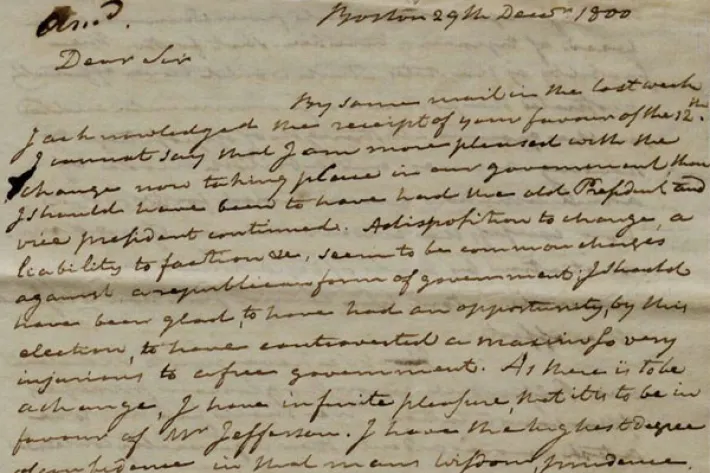 Ansd.
Boston 29th Decr 1800
Dear Sir
By some mail in the last week
I acknowledged the receipt of your favour of the 12th.
I cannot say that I am more pleased with the
change now taking place in our government, than
I should have been to have had the old President and
vice president continued. A disposition to change, a
liability to faction &c, seem to be common charges
against a republican form of government; I should
have been glad, to have had an opportunity, by this
election, to have controverted a maxim so very
injurious to a free government. As there is to be
a change, I have infinite pleasure, that it is to be in
favour of Mr Jefferson. I have the highest degree
of confidence in that mans wisdom, prudence,